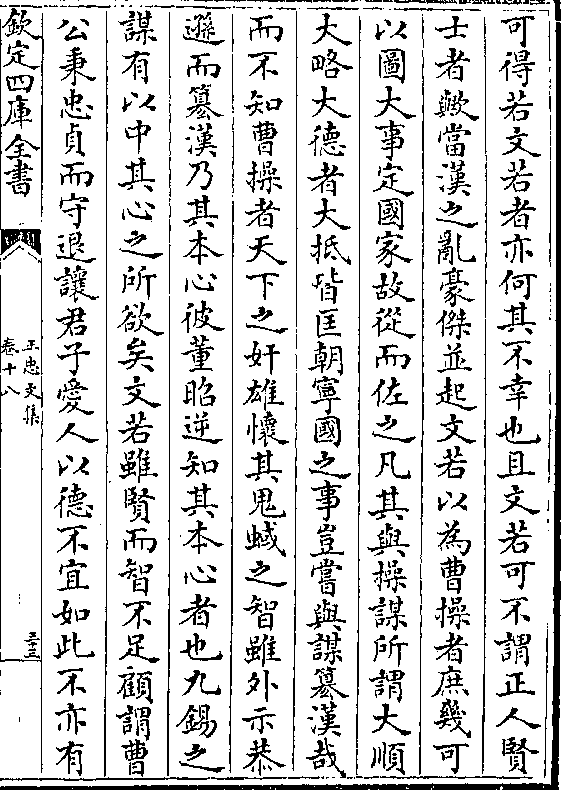 可得若文若者亦何其不幸也且文若可不謂正人賢
士者歟當漢之亂豪傑並起文若以為曹操者庶幾可
以圖大事定國家故從而佐之凡其與操謀所謂大順
大略大德者大抵皆匡朝寧國之事豈嘗與謀簒漢哉
而不知曹操者天下之奸雄懷其鬼蜮之智雖外示恭
遜而簒漢乃其本心彼董昭逆知其本心者也九錫之
謀有以中其心之所欲矣文若雖賢而智不足顧謂曹
公秉忠貞而守退讓君子愛人以德不宜如此不亦有
欽定四庫全書
王忠文集
卷十八
三三